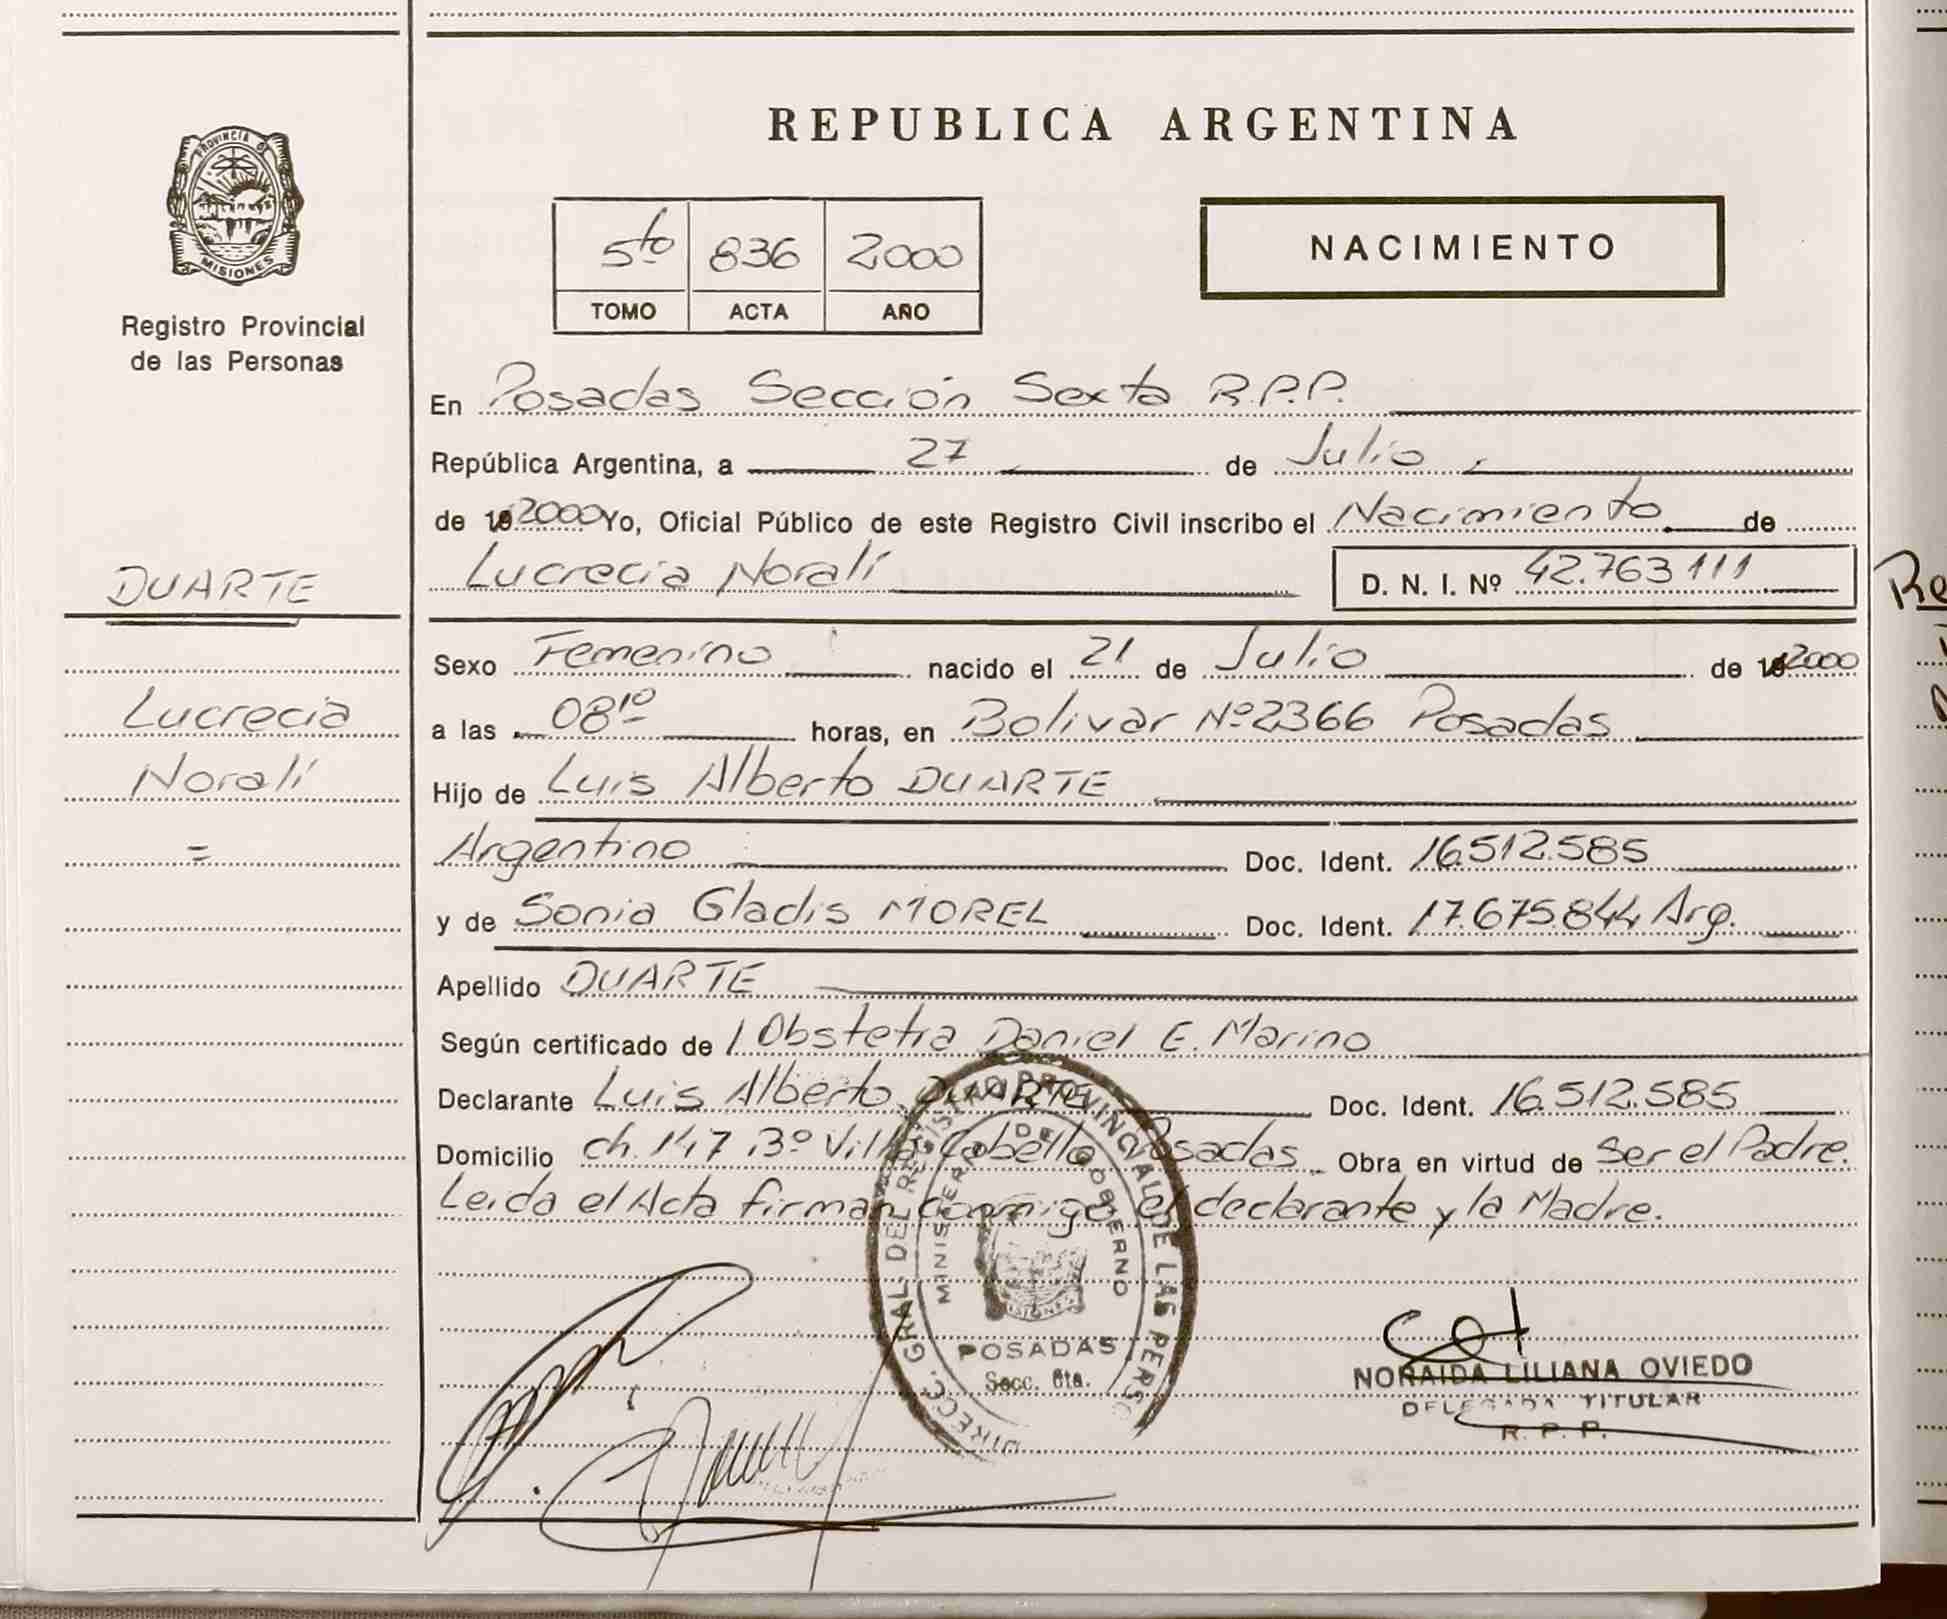 REPUBLICA ARGENTINA
PROVINCIA DE
MISIONES
Registro Provincial
de las Personas
5to 836 2000
TOMO ACTA AÑO
NACIMIENTO
En Posadas Sección Sexta R.P.P.
República Argentina, a 27 de Julio
de 19 2000 Yo, Oficial Público de este Registro Civil inscribo el Nacimiento de
Lucrecia Noralí D. N. I. Nº 42.763.111
DUARTE
Lucrecia
Noralí
=
Sexo Femenino nacido el 21 de Julio de 19 2000
a las 08 10 horas, en Bolivar Nº 2366 Posadas
Hijo de Luis Alberto DUARTE
Argentino Doc. Ident. 16.512.585
y de Sonia Gladis MOREL Doc. Ident. 17.675.844 Arg.
Apellido DUARTE
Según certificado de / Obstetra Daniel E. Marino
Declarante Luis Alberto DUARTE Doc. Ident. 16.512.585
Domicilio ch. 147 Bº Villa Cabello Posadas Obra en virtud de Ser el Padre.
Leida el Acta firman conmigo el declarante y la Madre.
DIRECC. GRAL DEL REGISTRO PROVINCIAL DE LAS PERSO
MINISTERIO DE GOBIERNO
MISIONES
POSADAS
Secc. 6ta.
NORAIDA LILIANA OVIEDO
DELEGADA TITULAR
R. P. P.